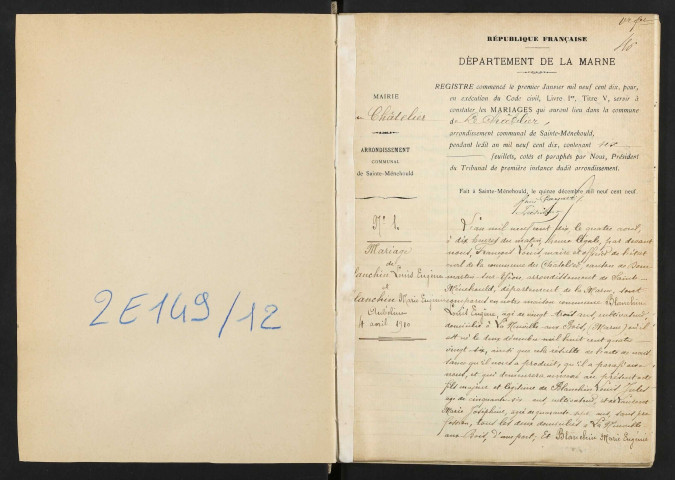 2E149/12
RÉPUBLIQUE FRANÇAISE
DÉPARTEMENT DE LA MARNE
MAIRIE
Châtelier
ARRONDISSEMENT
COMMUNAL
de Sainte-Ménehould
REGISTRE commencé le premier Janvier mil neuf cent dix, pour,
en exécution du Code civil, Livre Ier, Titre V, servir à
constater les MARIAGES qui auront lieu dans la commune
de Le Châtelier,
arrondissement communal de Sainte-Ménehould,
pendant ledit an mil neuf cent dix, contenant
feuillets, cotés et paraphés par Nous, Président
du Tribunal de première instance dudit arrondissement.
Fait à Sainte-Ménehould, le quinze décembre mil neuf cent neuf.
N° 1
Mariage
de
Blanchin Louis Eugène
et
Blanchin Marie Eugénie
4 avril 1910
L'an mil neuf cent dix, le quatre avril,
à dix heures du matin, heure légale, par devant
nous, maire et officier de l'état
civil de la commune de Châtelier, canton de Dom
martin-sur-Yèvre, arrondissement de Sainte-
Ménehould, département de la Marne, sont
comparus en notre maison commune Blanchin
Louis Eugène, âgé de vingt trois ans, cultivateur,
domicilié à La Neuville-aux-Bois, (Marne) où il
est né le onze décembre mil huit cent quatre-
vingt-six, ainsi que cela résulte de l'acte de nais
sance qu'il nous a produit, qu'il a paraphé avec
nous, et qui demeurera annexé au présent acte
fils majeur et légitime de Blanchin Jules
âgé de cinquante-six ans, cultivateur, et de
Marie Joséphine, âgée de quarante ans, sans pro
fession, tous les deux domiciliés à La Neuville-
aux-Bois, d'une part; Et Blanchin Marie Eugénie